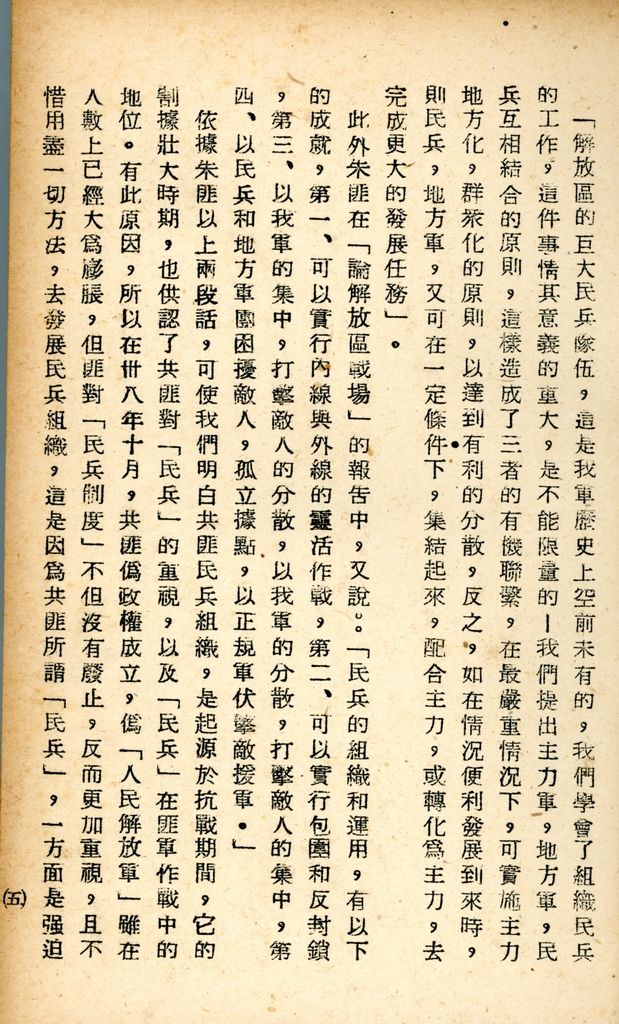 「解放區的巨大民兵隊伍，這是我軍歷史上空前未有的，我們學會了組織民兵
的工作，這件事情其意義的重大，是不能限量的—我們提出主力軍，地方軍，民
兵互相結合的原則，這樣造成了三者的有機聯繫，在最嚴重情況下，可實施主力
地方化，群衆化的原則，以達到有利的分散，反之，如在情況便利發展到來時，
則民兵，地方軍，又可在一定條件下，集結起來，配合主力，或轉化爲主力，去
完成更大的發展任務」。
此外朱匪在「論解放區戰場」的報告中，又說：「民兵的組織和運用，有以下
的成就，第一、可以實行內線與外線的靈活作戰，第二、可以實行包圍和反封鎖
，第三、以我軍的集中，打擊敵人的分散，以我軍的分散，打擊敵人的集中，第
四、以民兵和地方軍圍困擾敵人，孤立據點，以正規軍伏擊敵援軍．」
依據朱匪以上兩段話，可使我們明白共匪民兵組織，是起源於抗戰期間，它的
割據壯大時期，也供認了共匪對「民兵」的重視，以及「民兵」在匪軍作戰中的
地位。有此原因，所以在卅八年十月，共匪僞政權成立，僞「人民解放軍」雖在
人數上已經大爲膨脹，但匪對「民兵制度」不但沒有廢止，反而更加重視，且不
惜用盡一切方法，去發展民兵組織，這是因爲共匪所謂「民兵」，一方面是强迫
(五)